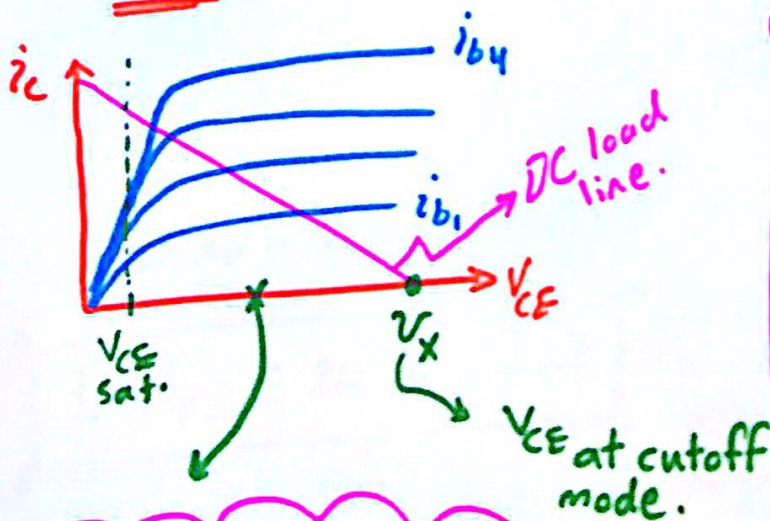 i_c
i_b4
DC load
line.
i_b1
V_CE
V_CE
sat.
v_x
V_CE at cutoff
mode.